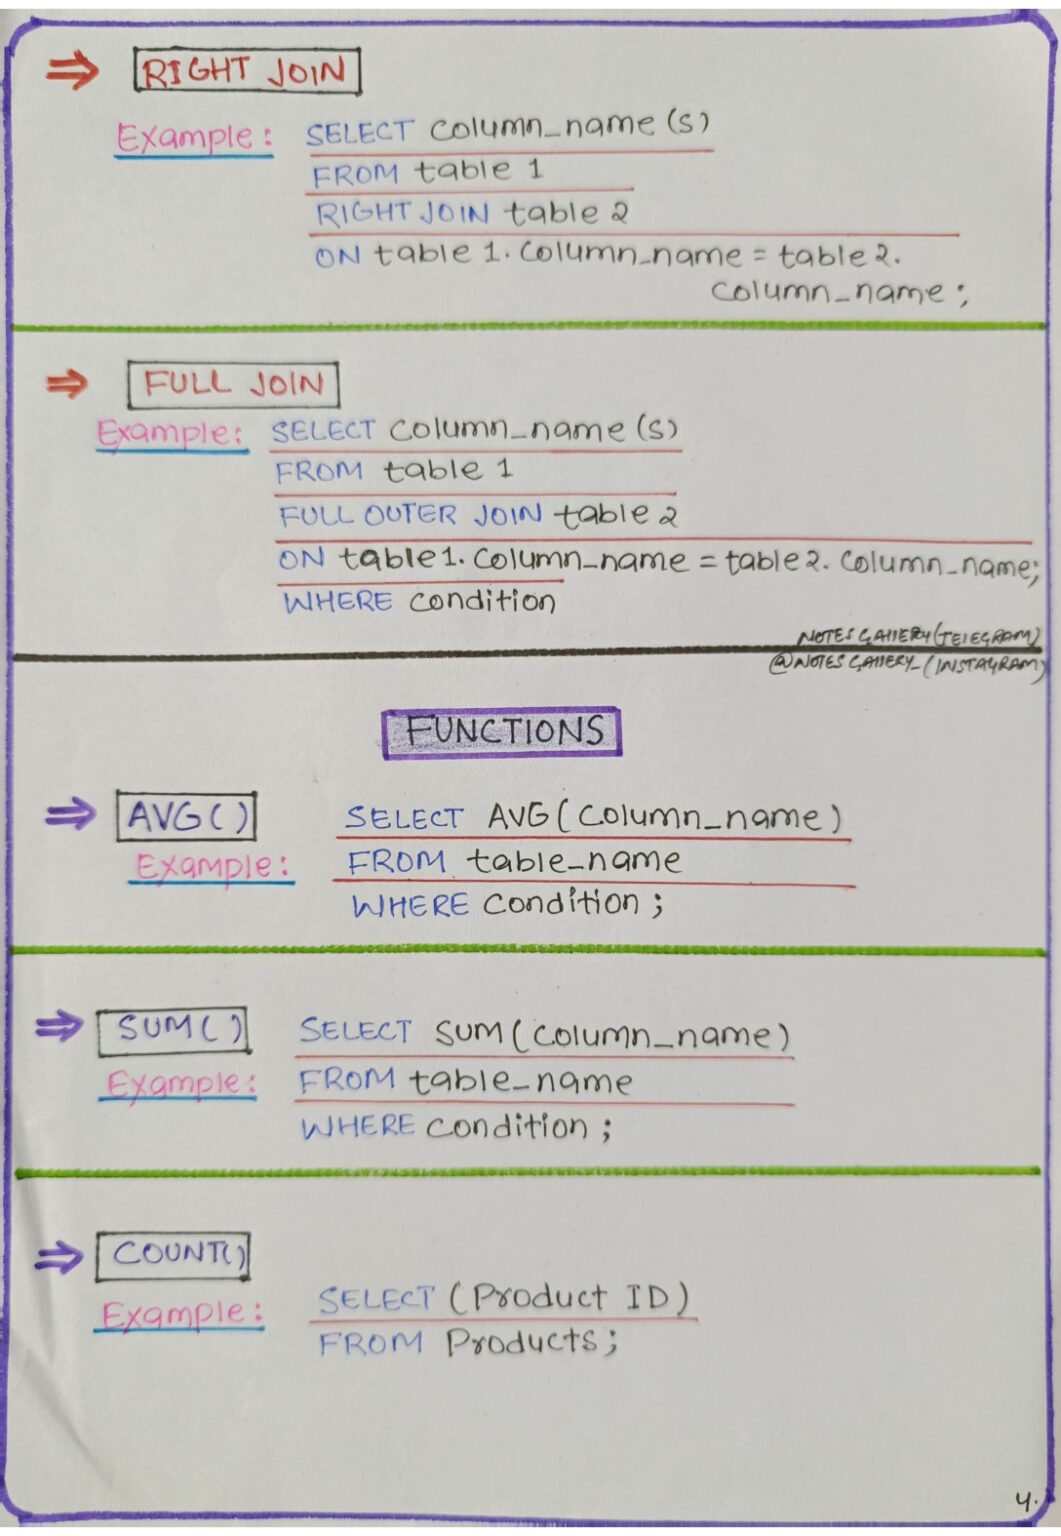 ⇒ RIGHT JOIN
Example: SELECT column_name (s)
FROM table 1
RIGHT JOIN table 2
ON table 1. column_name = table 2.
column_name ;
⇒ FULL JOIN
Example: SELECT column_name (s)
FROM table 1
FULL OUTER JOIN table 2
ON table1. column_name = table 2. column_name;
WHERE condition
NOTES GALLERY (TELEGRAM)
@NOTES GALLERY_ (INSTAGRAM)
FUNCTIONS
⇒ AVG() SELECT AVG (column_name)
Example: FROM table_name
WHERE condition ;
⇒ SUM() SELECT SUM (column_name)
Example: FROM table_name
WHERE condition ;
⇒ COUNT()
Example: SELECT (Product ID)
FROM Products ;
4.